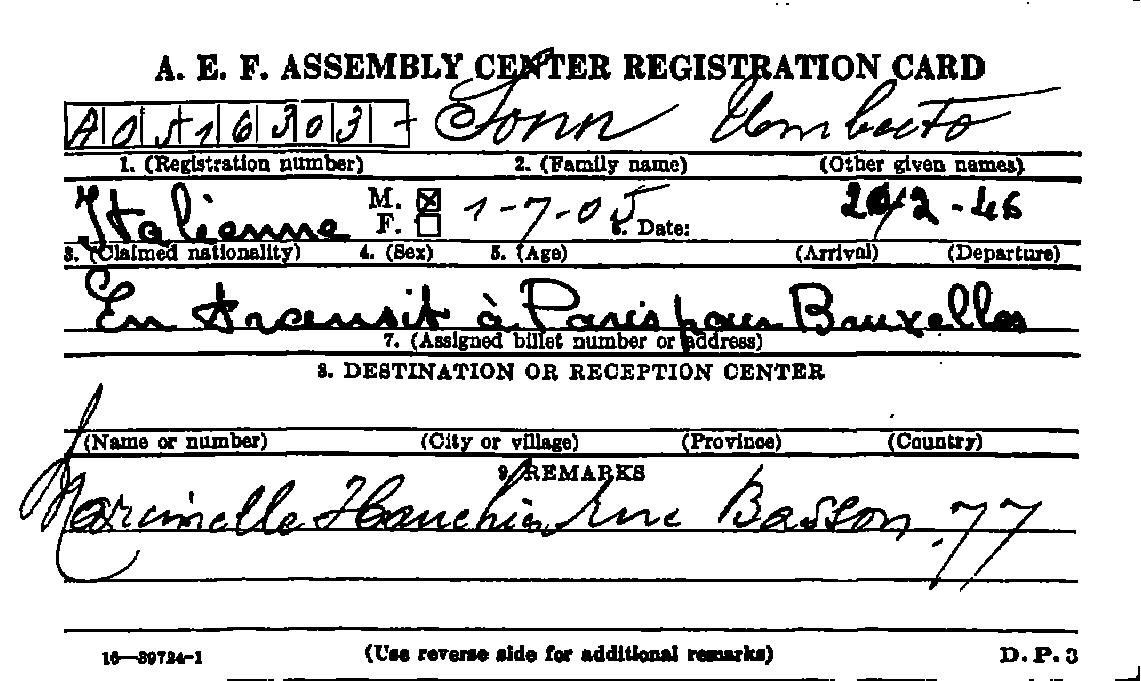 A. E. F. ASSEMBLY CENTER REGISTRATION CARD
Umberto
1. (Registration number) 2. (Family name) (Other given names)
Italienne M. ☒ F. ☐ 1-7-05 6. Date: -2-46
3. (Claimed nationality) 4. (Sex) 5. (Age) (Arrival) (Departure)
En transit à Paris pour Bruxelles
7. (Assigned billet number or address)
8. DESTINATION OR RECEPTION CENTER
(Name or number) (City or village) (Province) (Country)
9. REMARKS
Marcinelle Hauchis Rue Basson 77
16—39724-1 (Use reverse side for additional remarks) D.P.3